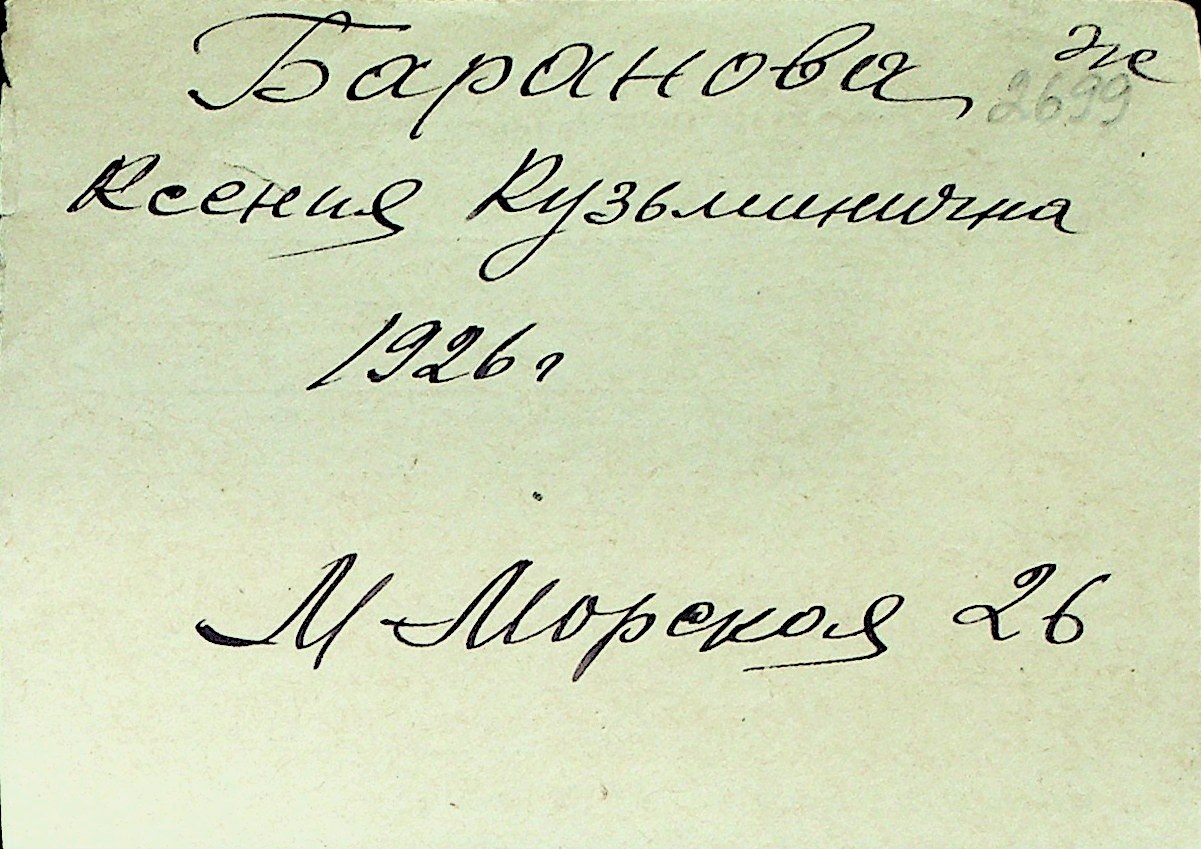 Баранова ж
2699
Ксения Кузьминична
1926 г
М-Морская 26